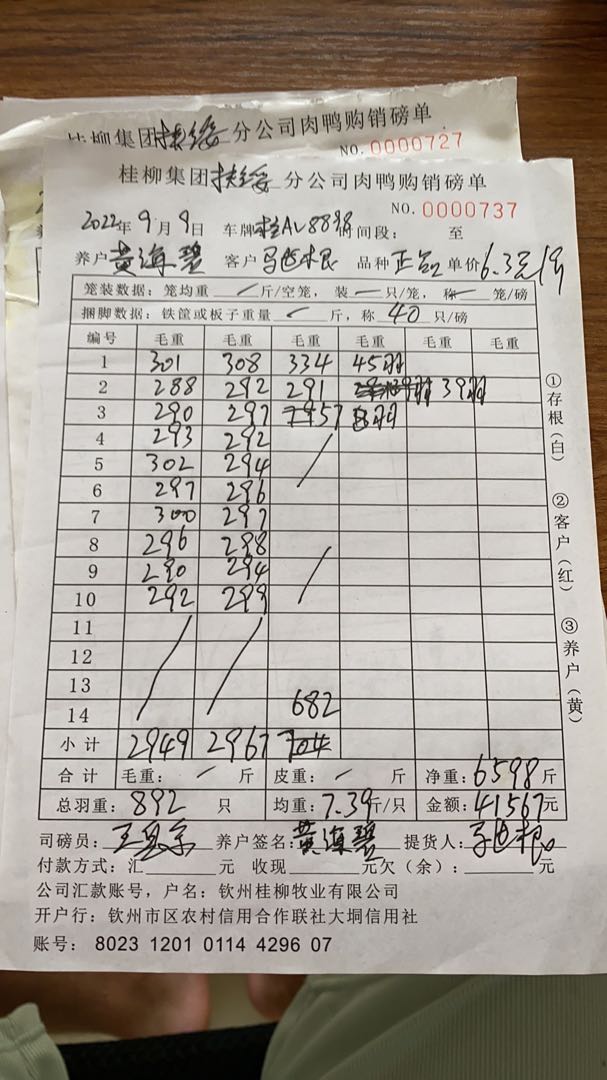 桂柳集团扶绥分公司肉鸭购销磅单
NO. 0000727
桂柳集团扶绥分公司肉鸭购销磅单
NO. 0000737
2022年9月9日 车牌 间段： 至
养户 黄海碧 客户 品种 单价 6.3元/斤
笼装数据：笼均重 / 斤/空笼，装 一 只/笼，称 一 笼/磅
捆脚数据：铁筐或板子重量 / 斤，称 40 只/磅
编号 毛重 毛重 毛重 毛重 毛重 毛重
1 301 308 334 45羽
2 288 292 291 39羽
3 290 297 57 8羽
4 293 292
5 302 294
6 297 296
7 300 297
8 296 298
9 290 294
10 292 299
11
12
13
14 682
小计 2949 2967
合计 毛重： / 斤 皮重： / 斤 净重：6598斤
总羽重：892 只 均重：7.39斤/只 金额：41567元
司磅员： 养户签名：黄海碧 提货人：
付款方式：汇 元 收现 元欠（余）： 元
公司汇款账号，户名：钦州桂柳牧业有限公司
开户行：钦州市区农村信用合作联社大垌信用社
账号： 8023 1201 0114 4296 07
①存根（白） ②客户（红） ③养户（黄）